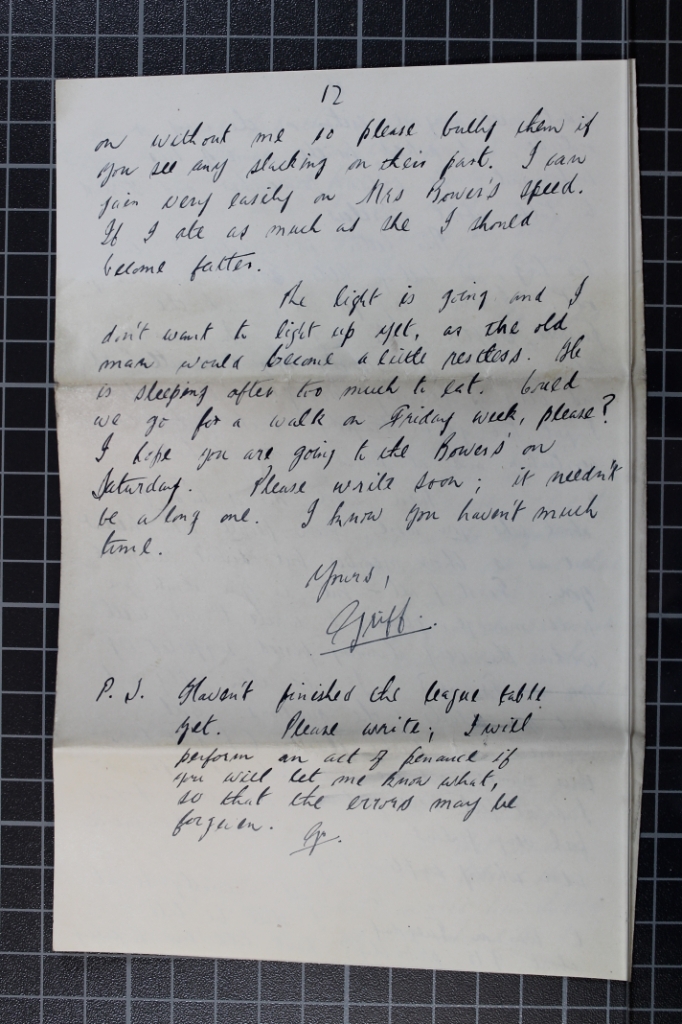 12
on without me so please bully them if
you see any slacking on their part. I can
gain very easily on Mrs Bower's speed.
If I ate as much as she I should
become fatter.
The light is going and I
don't want to light up yet, as the old
man would become a little restless. He
is sleeping after too much to eat. Could
we go for a walk on Friday week, please?
I hope you are going to the Bowers' on
Saturday. Please write soon; it needn't
be a long one. I know you haven't much
time.
Yours,
Griff.
P.S. Haven't finished the league table
yet. Please write; I will
perform an act of penance if
you will let me know what,
so that the errors may be
forgiven. Gr.